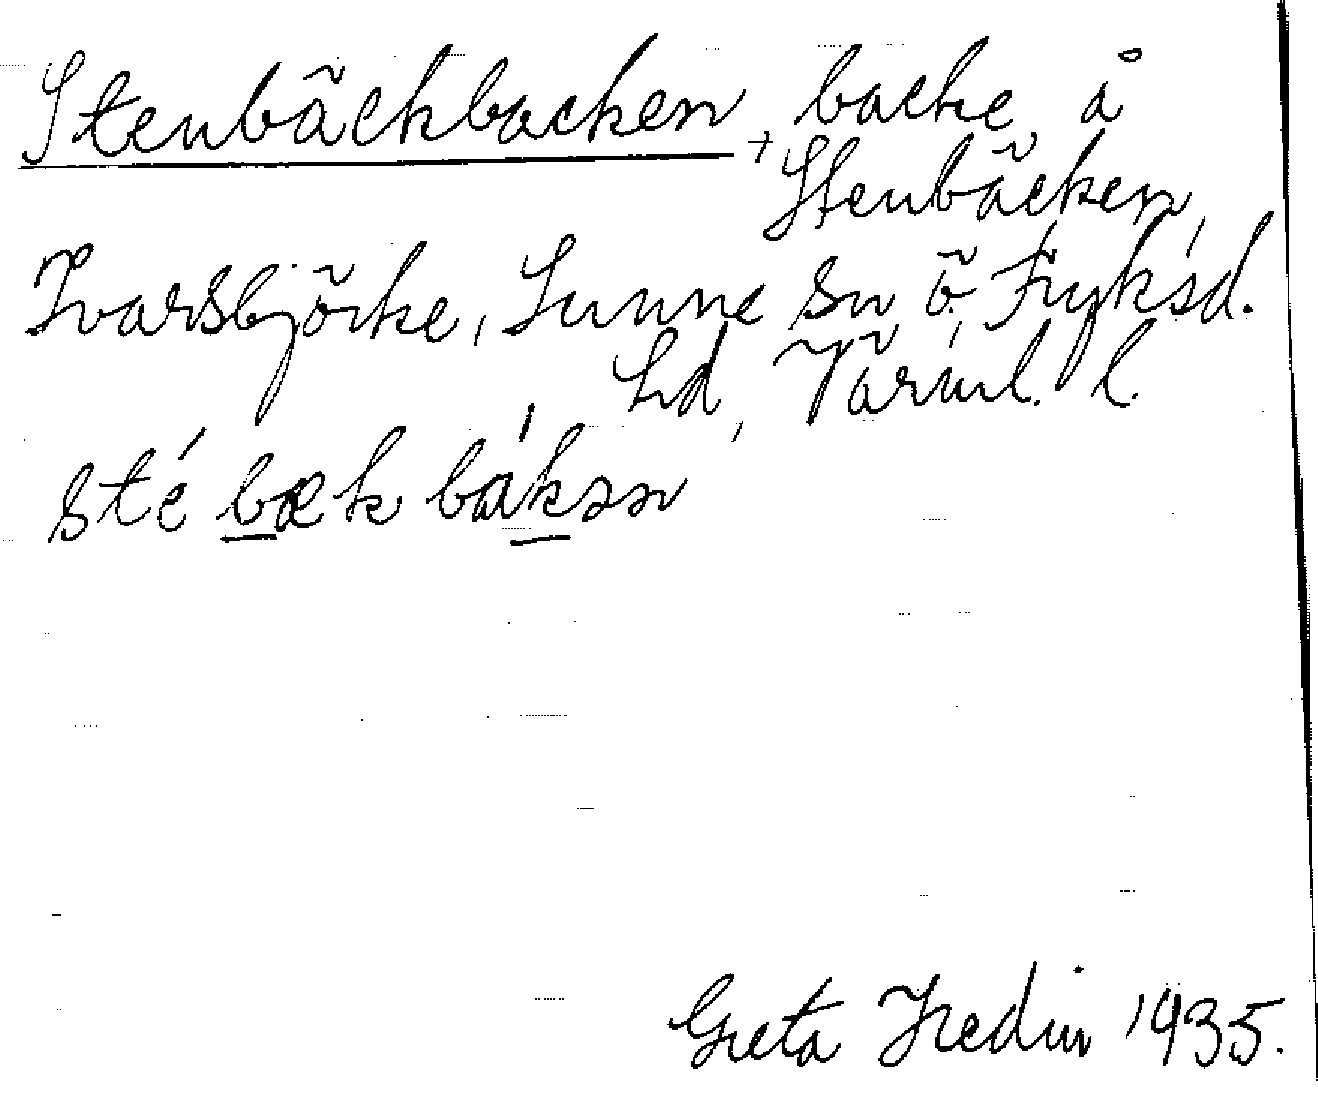 Stenbäckbacken, backe å
+ Stenbäcken,
Ivarsbjörke, Sunne sn ö. Fryksd.
hd, Värml. l.
sté bæk bákən
Greta Hedin 1935.